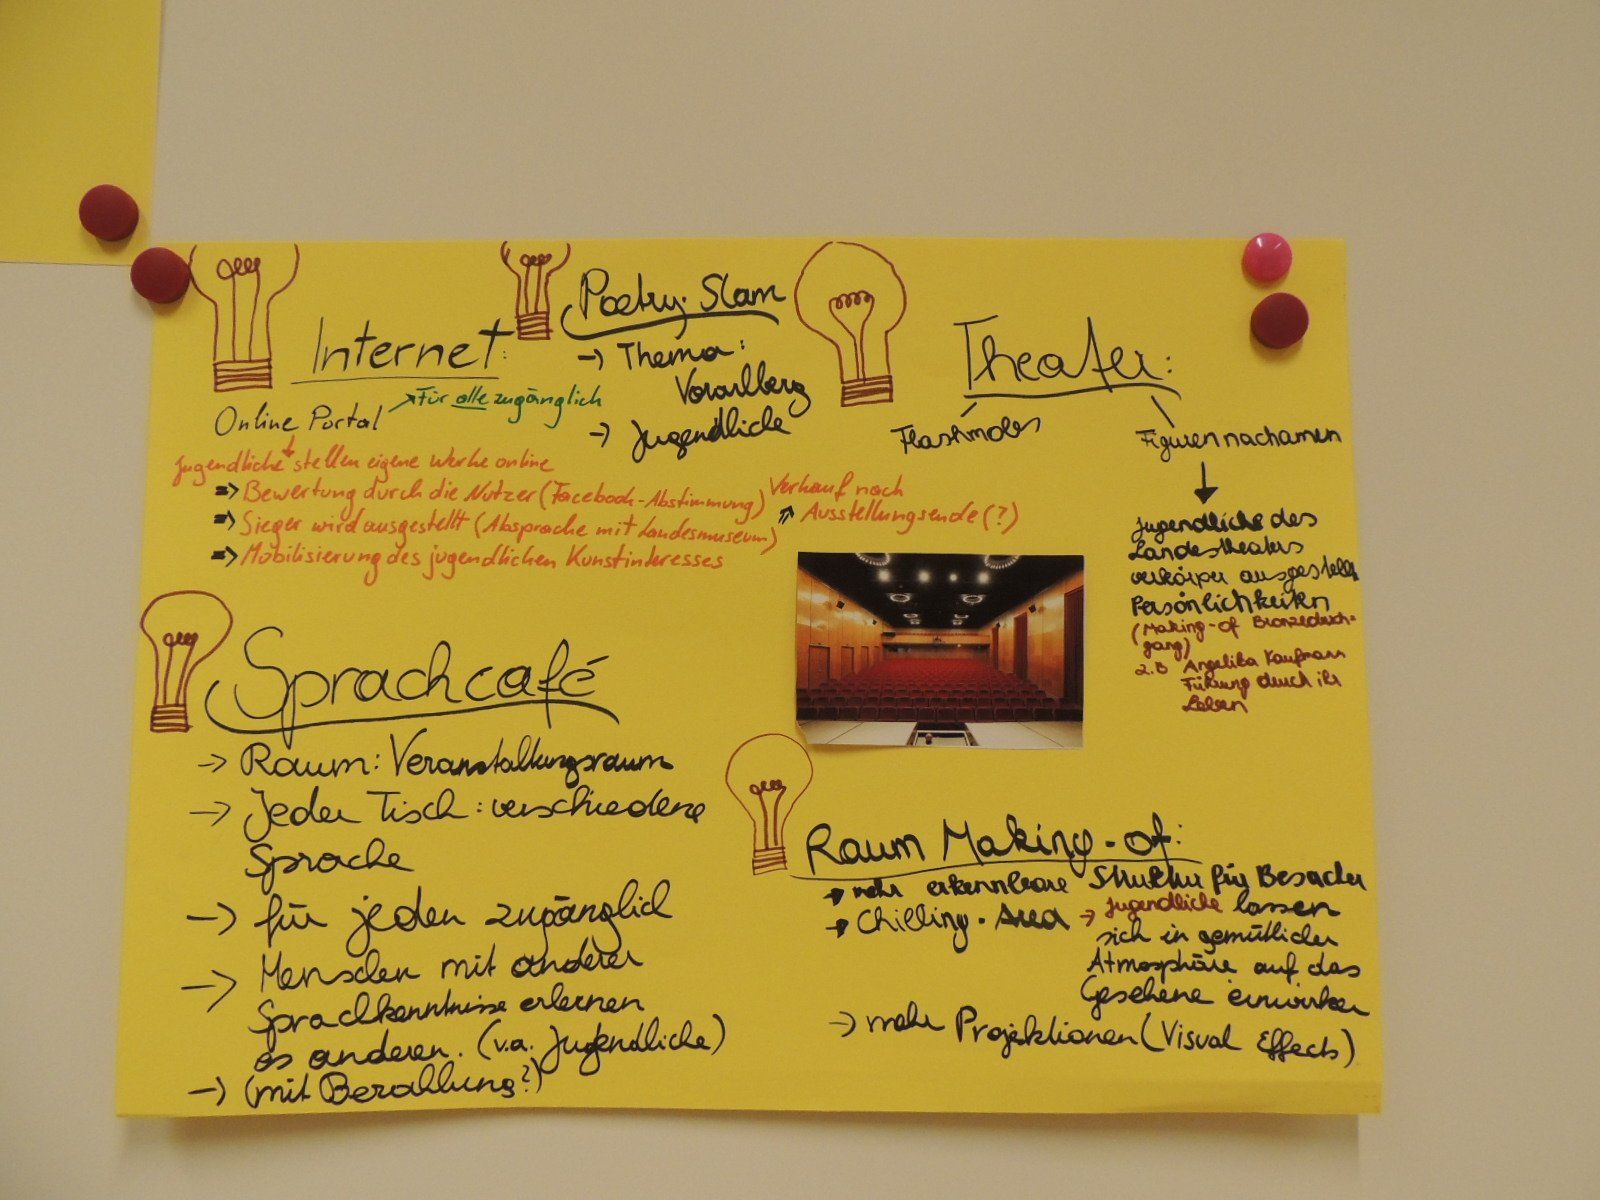 Internet:
Online Portal
Für alle zugänglich
Jugendliche stellen eigene Werke online
=> Bewertung durch die Nutzer (Facebook-Abstimmung)
=> Sieger wird ausgestellt (Absprache mit Landesmuseum)
Verkauf nach
Ausstellungsende (?)
=> Mobilisierung des jugendlichen Kunstinteresses
Poetry-Slam
→ Thema:
Vorarlberg
→ Jugendliche
Theater:
Flashmobs
Figuren nachamen
Jugendliche des
Landestheaters
verkörper ausgestellt
Persönlichkeiten
(Making-of Bronzedurch-
gang)
z.B Angelika Kaufmann
Führung durch ihr
Leben
Sprachcafé
→ Raum: Veranstaltungsraum
→ Jeder Tisch: verschiedene
Sprache
→ für jeden zugänglich
→ Menschen mit anderer
Sprachkenntnisse erlernen
es anderen. (v.a. Jugendliche)
→ (mit Bezahlung?)
Raum Making-of:
→ mehr erkennbare Struktur für Besucher
→ Chilling-Area → Jugendliche lassen
sich in gemütlicher
Atmosphäre auf das
Geschene einwirken
→ mehr Projektionen (Visual Effects)